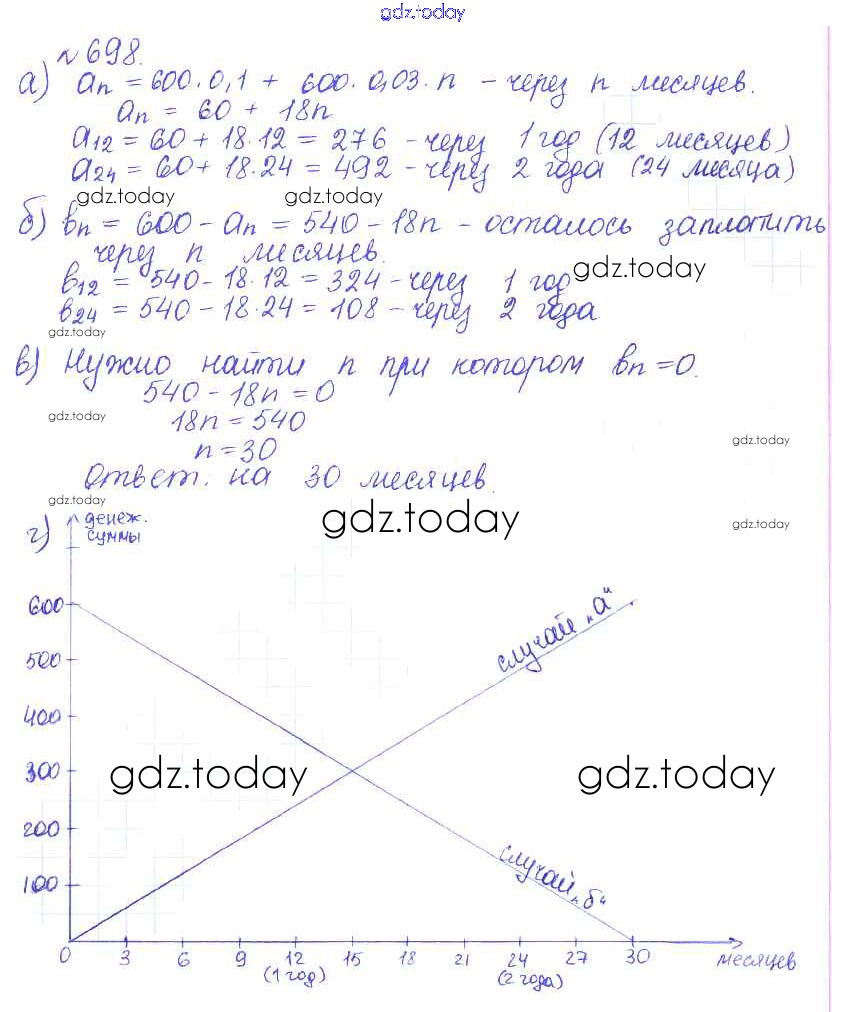 gdz.today
№698.
а) aₙ = 600·0,1 + 600·0,03·n – через n месяцев.
aₙ = 60 + 18n
a₁₂ = 60 + 18·12 = 276 – через 1 год (12 месяцев)
a₂₄ = 60 + 18·24 = 492 – через 2 года (24 месяца)
gdz.today gdz.today
б) bₙ = 600 – aₙ = 540 – 18n – осталось заплатить
через n месяцев.
gdz.today
b₁₂ = 540 – 18·12 = 324 – через 1 год
b₂₄ = 540 – 18·24 = 108 – через 2 года
gdz.today
в) Нужно найти n при котором bₙ = 0.
540 – 18n = 0
gdz.today
18n = 540
gdz.today
n = 30
Ответ: на 30 месяцев.
gdz.today
gdz.today
gdz.today
г) денеж.
суммы
600
случай „а“
500
400
300
gdz.today gdz.today
200
случай „б“
100
0 3 6 9 12 15 18 21 24 27 30 месяцев
(1 год) (2 года)